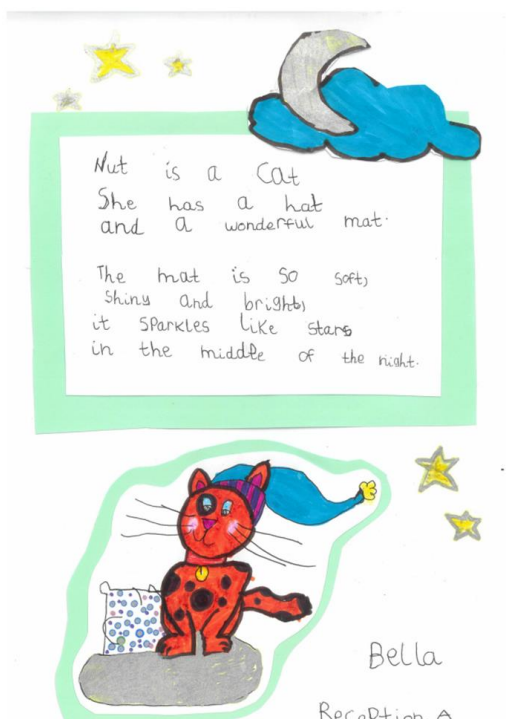 Nut is a Cat
She has a hat
and a wonderful mat.
The mat is so soft,
shiny and bright,
it sparkles like stars
in the middle of the night.
Bella
Reception A